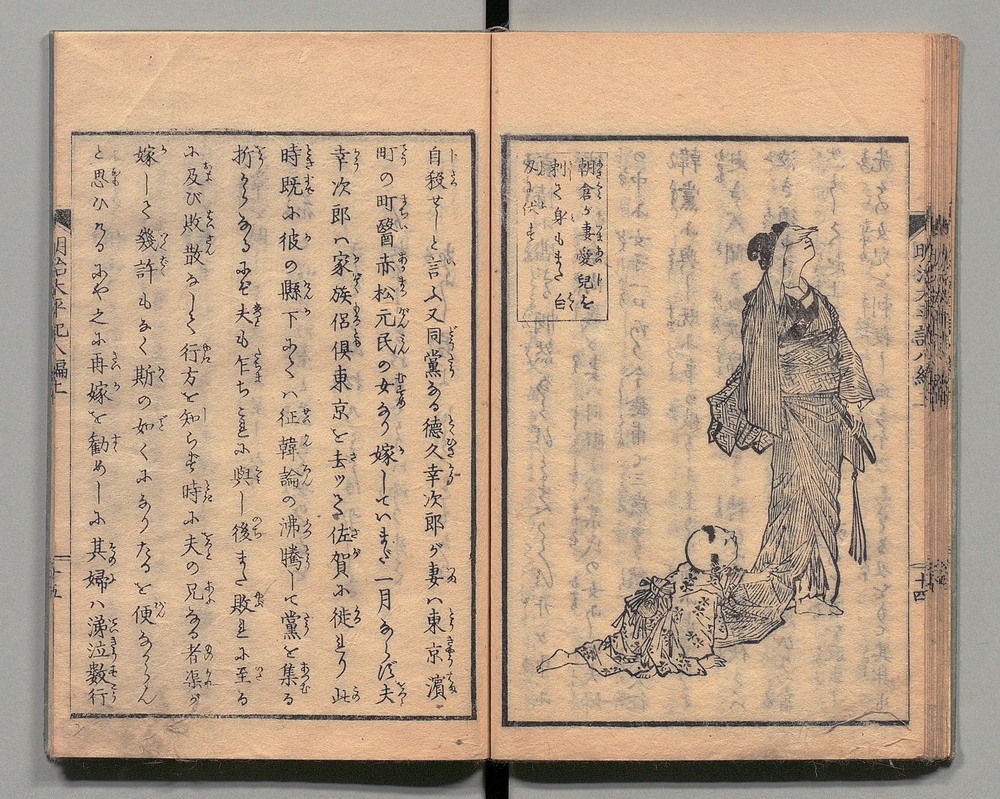 朝倉が妻愛児を
刺て身もまた白
刃に伏す
明治太平記八編上
十四
自殺せしと言ふ又同黨なる德久幸次郎が妻ハ東京濱
町の町醫赤松元民の女なり嫁していまだ一月ならず夫
幸次郎ハ家族侶倶東京を去ツて佐賀に徙れり此
時既に彼の縣下にてハ征韓論の沸騰して黨を集る
折からなるにぞ夫も乍ちこれに與し後また敗れに至る
に及び敗散なして行方を知らず時に夫の兄なる者渠が
嫁して幾許もなく斯の如くになりたるを便なからん
と思ひけるにや之に再嫁を勸めしに其婦ハ涕泣數行
明治太平記八編上
十五